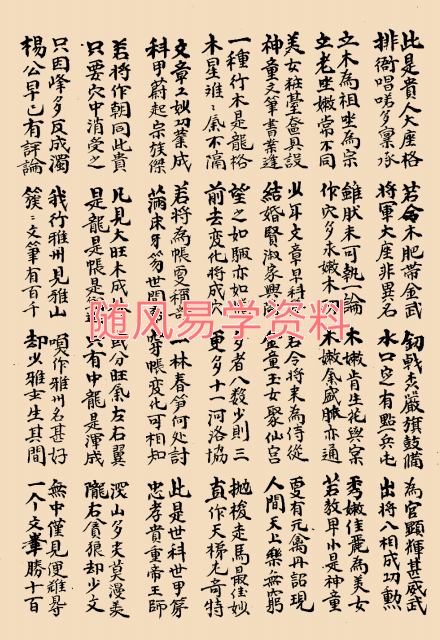 此是貴人大座格 若合木肥帶金武 劍戟森嚴旗鼓備 為官顯輝甚威武
排衙唱喏多稟承 將軍大座非異名 水口定有點兵屯 出將入相成功勲
立木為祖坐為宗 雖狀未可執一論 木嫩肯生花與案 秀嫩佳麗為美女
立老坐嫩常不同 作穴多求嫩木穴 木嫩氣盛脉亦通 若教甲小是神童
美女粧臺奩具設 少年文章早科 今將来為侍從 更有元禽丹詔現
神童文筆書案逢 結婚賢淑家興 金童玉女聚仙宮 人間天上樂無窮
一種行木是龍格 望之如 亦如 多者八殺少則三 拋梭走馬最佳妙
木星 氣不隔 前去变化將成穴 更多十一河洛協 貞作天梯尤奇特
文章工妙功業成 若將為帳更稱 一林春笋何處討 此是世科世甲第
科甲蔚起宗族傑 滿床牙笏世間 穿帳變化可相知 忠孝貴重帝王師
若將作朝同此貴 凡見大旺木成 分旺氣左右翼 漫山多 莫漫
只要穴中消受之 是龍是帳是 只有中龍是渾成 隴右貪狼却少文
只因峰多反成濁 我行雅州見雅山 作雅州名甚好 無中僅見便難尋
楊公早已有評論 簇〻文筆有百千 却少雅士生其間 一个文峯勝十百
随风易学资料